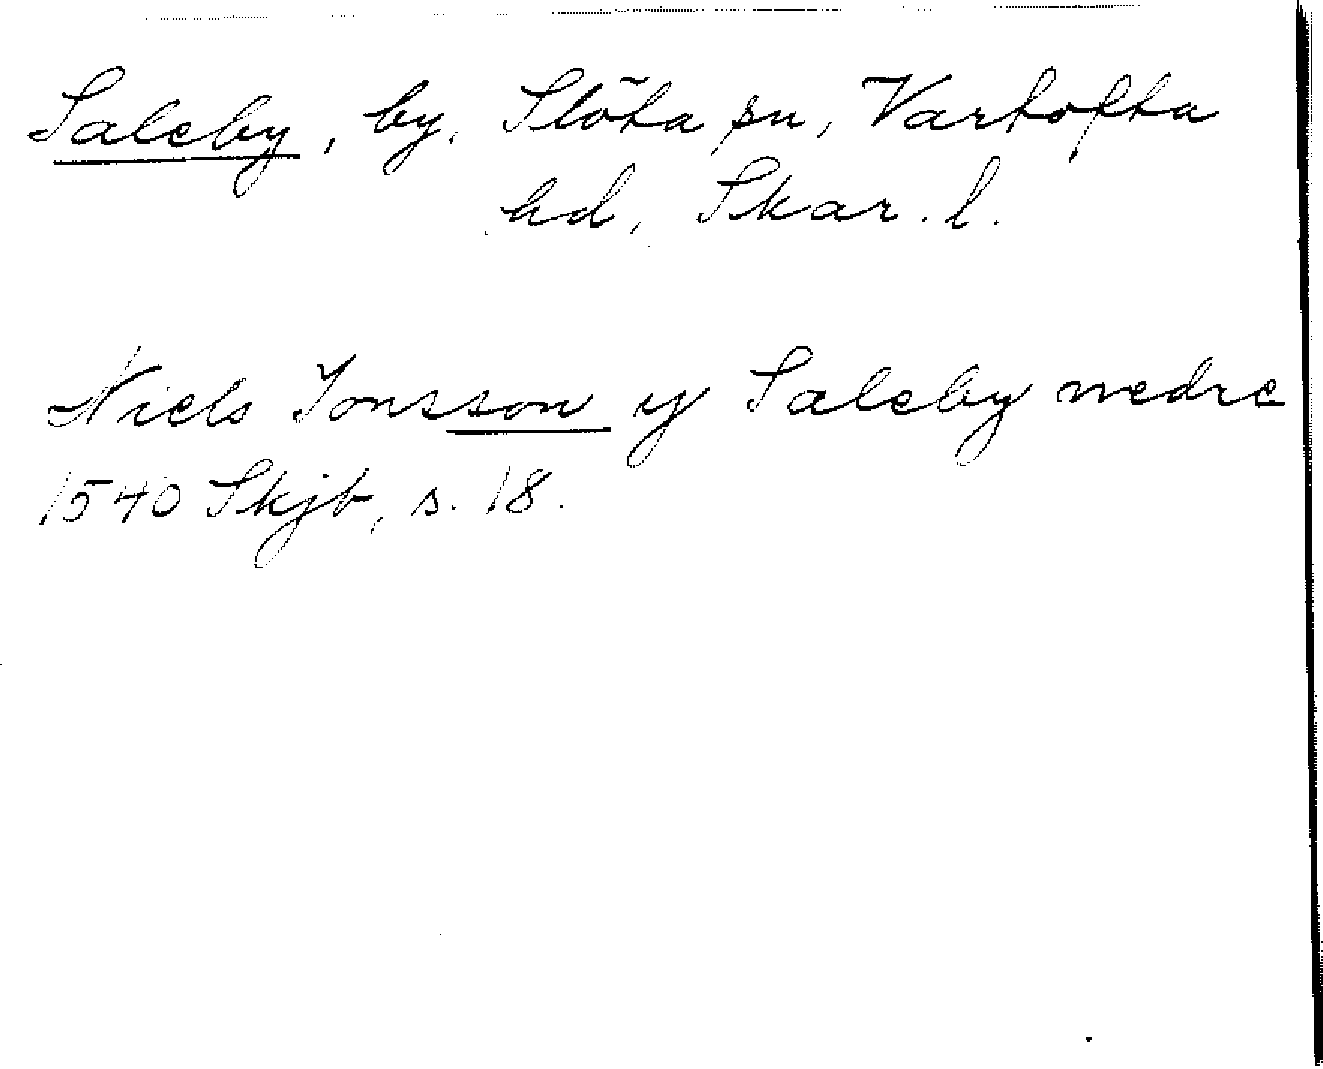 Saleby, by, Slöta sn, Vartofta
hd, Skar. l.
Niels Jonsson y Saleby nedre
1540 Skjb, s. 18.